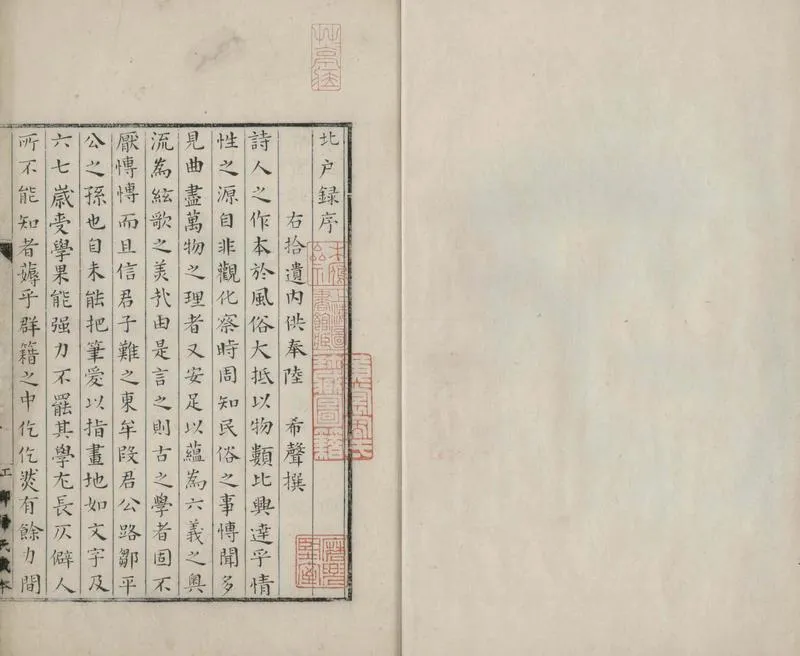 北户録序
右拾遺内供奉陸 希聲撰
詩人之作本於風俗大抵以物類比興達乎情
性之源自非觀化察時周知民俗之事愽聞多
見曲盡萬物之理者又安足以蘊為六義之奥
流為絃歌之美㢤由是言之則古之學者固不
厭愽愽而且信君子難之東牟段君公路鄒平
公之孫也自未能把筆愛以指畫地如文字及
六七歲受學果能强力不罷其學尤長仄僻人
所不能知者薅乎群籍之中仡仡然有餘力間